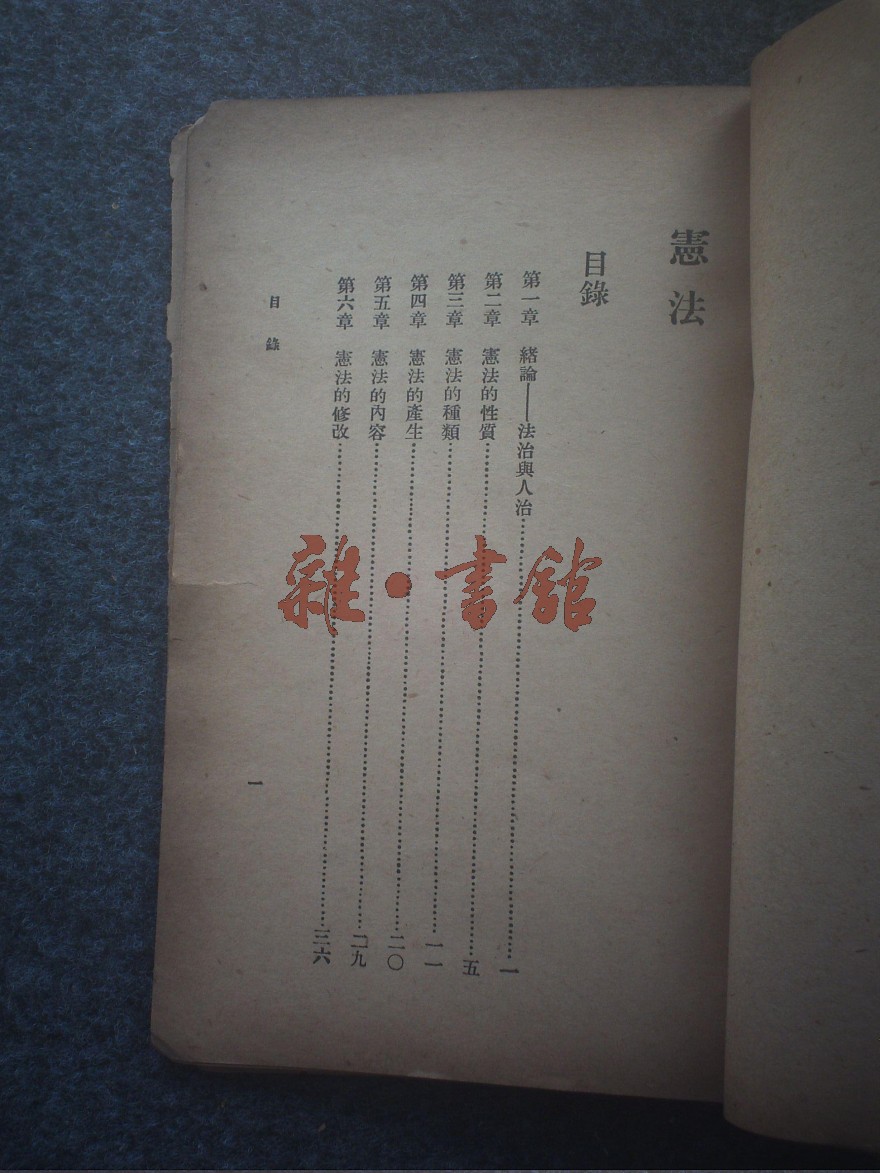 憲法
目錄
第一章 緒論——法治與人治……一
第二章 憲法的性質……五
第三章 憲法的種類……一一
第四章 憲法的產生……二〇
第五章 憲法的內容……二九
第六章 憲法的修改……三六
目錄
一
雜·書館